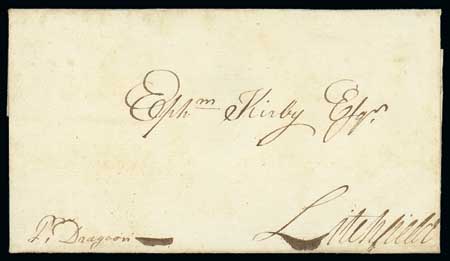 Ephm Kirby Esqr
Litchfield
Pr Dragoon